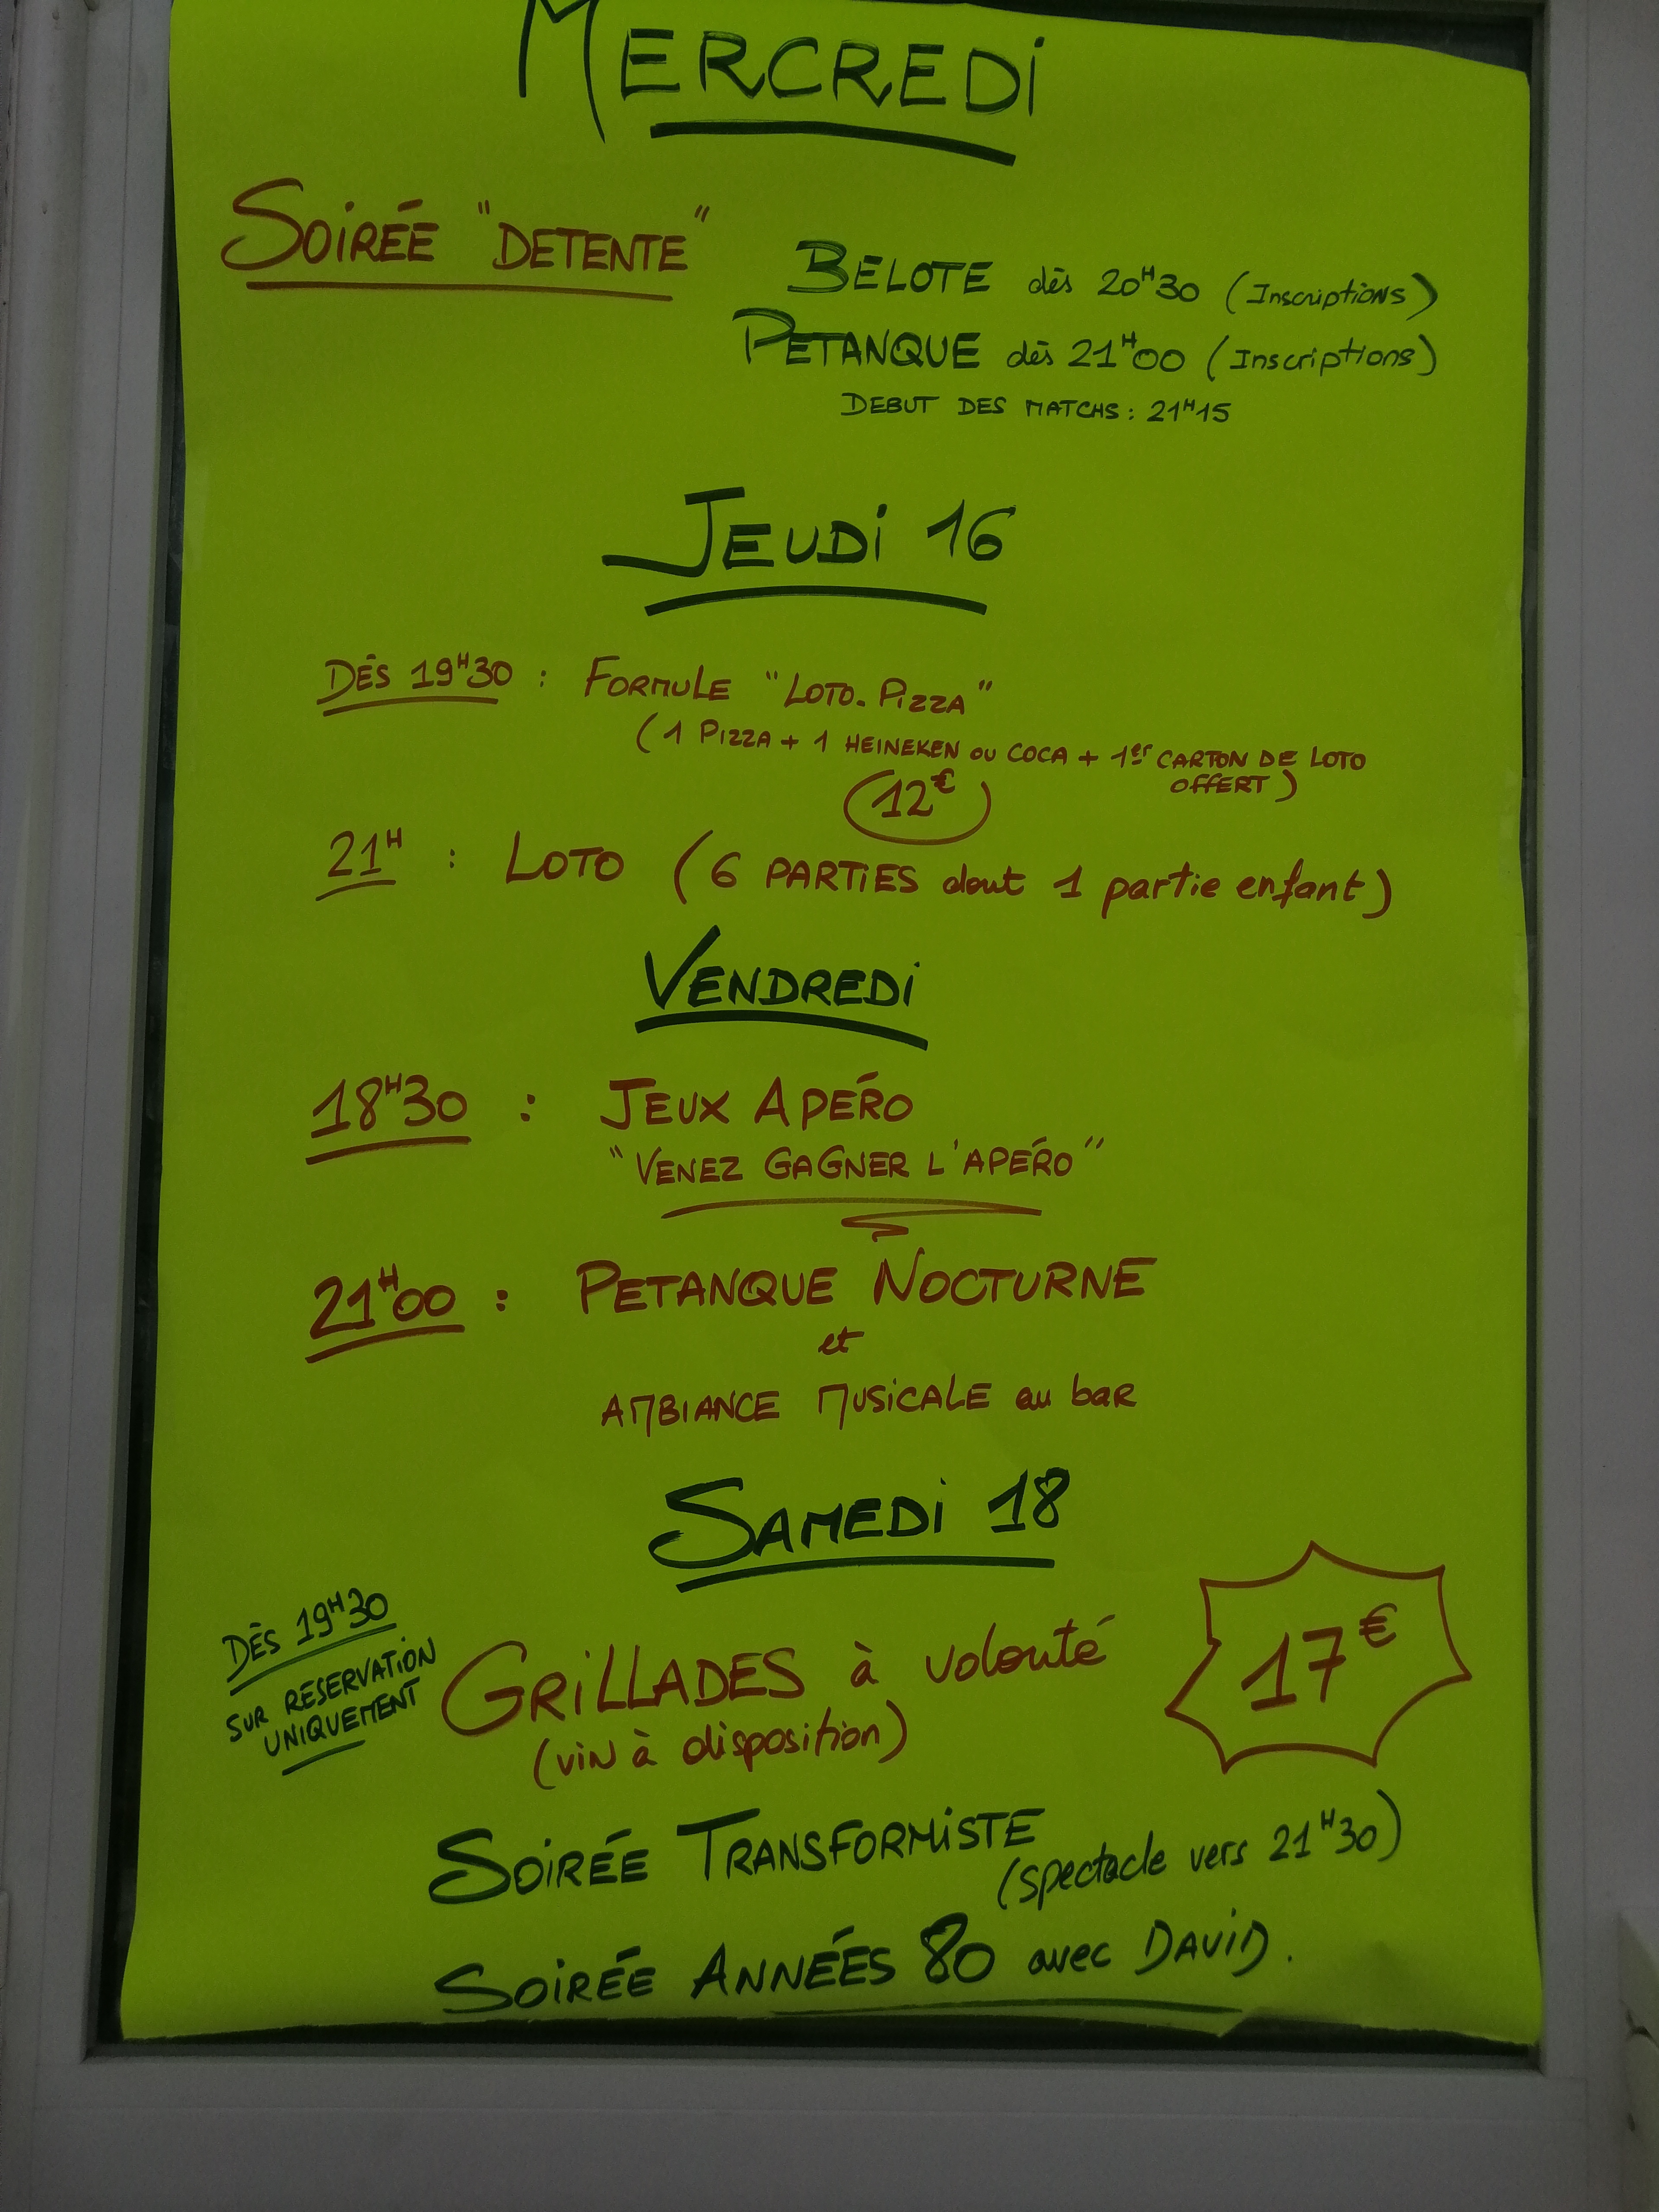 MERCREDI
SOIRÉE "DETENTE"
BELOTE dès 20H30 (Inscriptions)
PETANQUE dès 21H00 (Inscriptions)
DEBUT DES MATCHS : 21H15
JEUDI 16
DÈS 19H30 : FORMULE "LOTO.PIZZA"
(1 PIZZA + 1 HEINEKEN OU COCA + 1er CARTON DE LOTO
OFFERT)
12€
21H : LOTO (6 PARTIES dont 1 partie enfant)
VENDREDI
18H30 : JEUX APÉRO
"VENEZ GAGNER L'APÉRO"
21H00 : PETANQUE NOCTURNE
et
AMBIANCE MUSICALE au bar
SAMEDI 18
DÈS 19H30
SUR RÉSERVATION
UNIQUEMENT
GRILLADES à volonté
(vin à disposition)
17€
SOIRÉE TRANSFORMISTE
(spectacle vers 21H30)
SOIRÉE ANNÉES 80 avec DAVID.